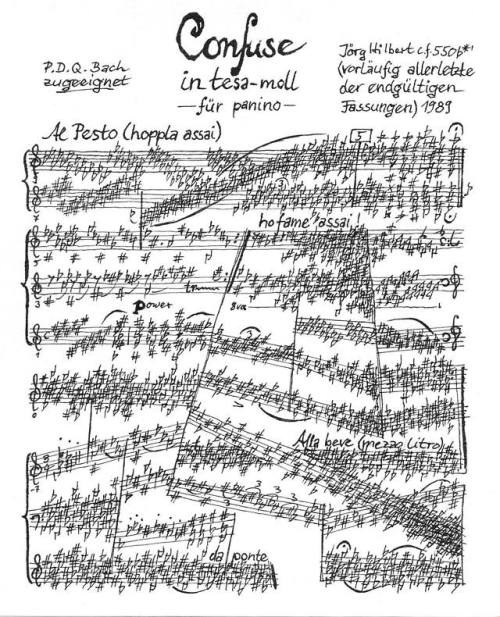 Confuse
in tesa-moll
— für panino —
P.D.Q. Bach
zugeeignet
Jörg Hilbert c.f. 550b*)
(vorläufig allerletzte
der endgültigen
Fassungen) 1989
Al Pesto (hoppla assai)
5
ho fame assai!
power
8va
Alla beve (mezzo litro)
3 3 3
da ponte